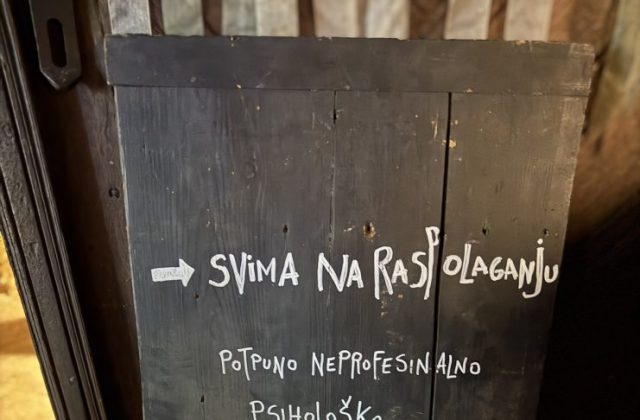 SViMA NA RASPOLAGANJU
POTPUNO NEPROFESINALNO
PSIHOLOŠKO